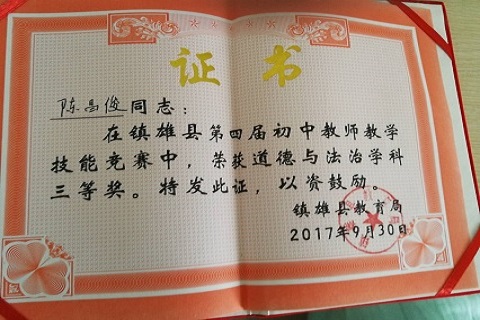 证书
陈昌俊同志：
在镇雄县第四届初中教师教学
技能竞赛中，荣获道德与法治学科
三等奖。特发此证，以资鼓励。
镇雄县教育局
2017年9月30日